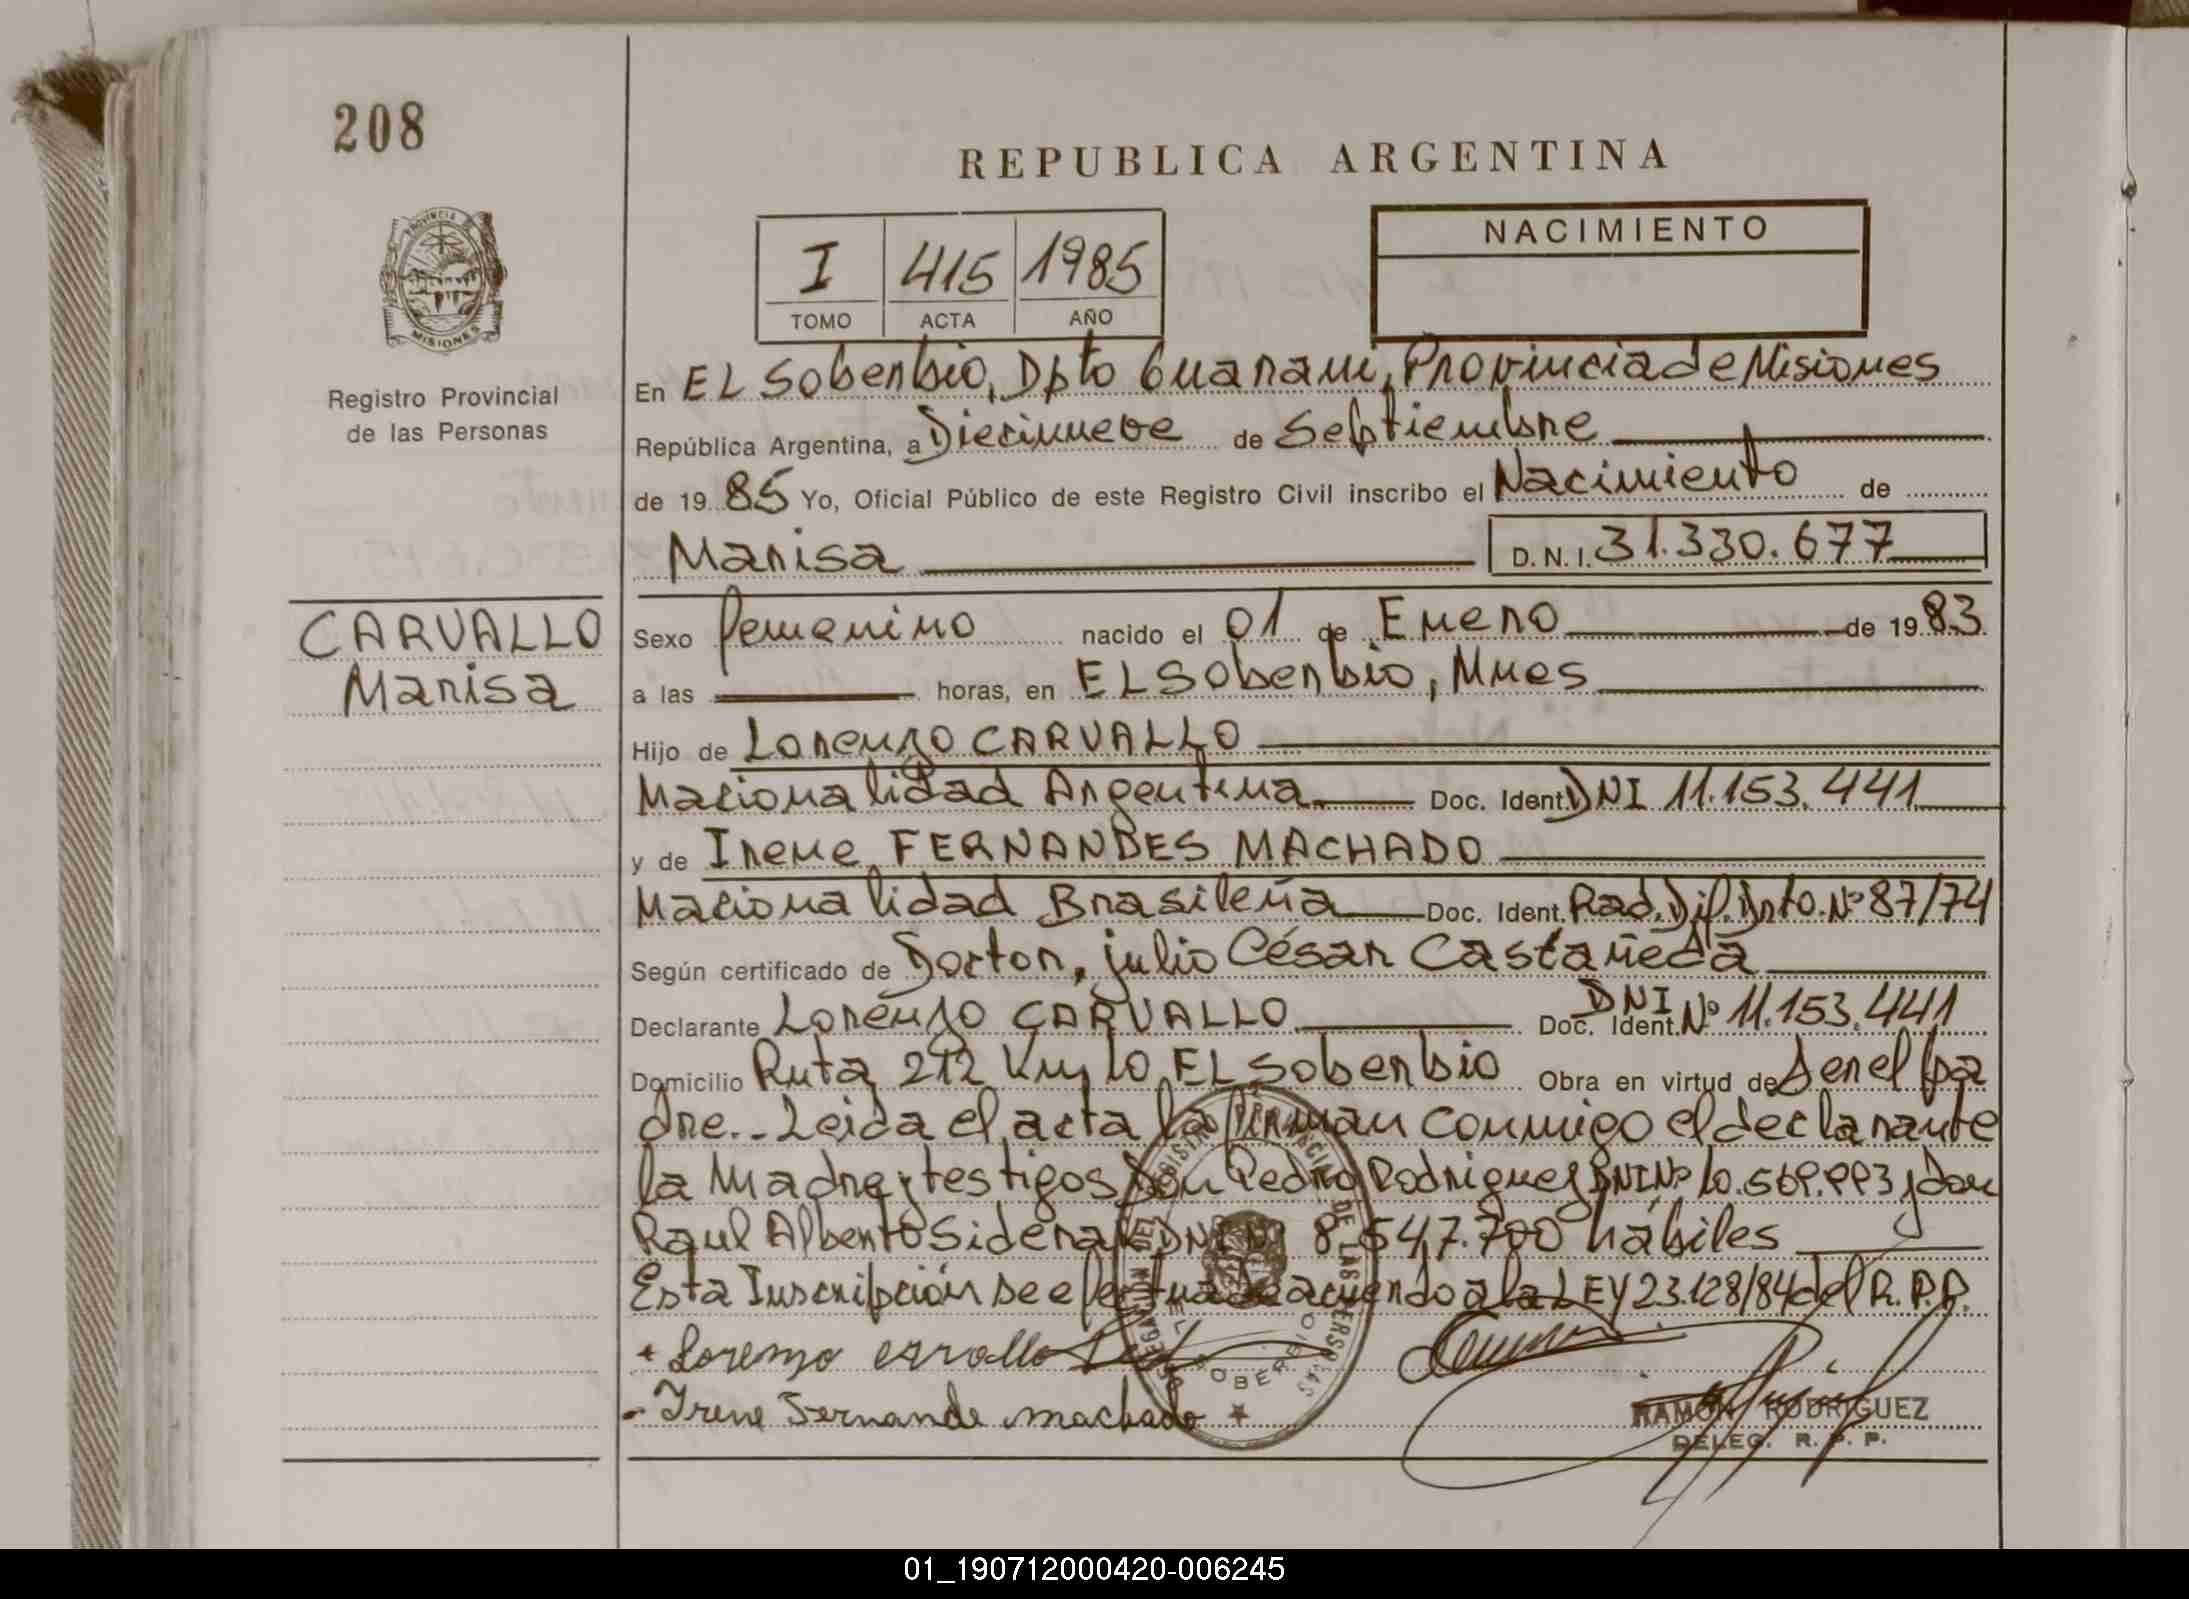 208
REPUBLICA ARGENTINA
PROVINCIA DE
MISIONES
Registro Provincial
de las Personas
I 415 1985
TOMO ACTA AÑO
NACIMIENTO
En EL Soberbio, Dpto Guarani, Provincia de Misiones
República Argentina, a Diecinueve de Septiembre
de 1985 Yo, Oficial Público de este Registro Civil inscribo el Nacimiento de
Marisa D.N.I. 31.330.677
CARVALLO
Marisa
Sexo femenino nacido el 01 de Enero de 1983
a las horas, en EL Soberbio, Mnes
Hijo de Lorenzo CARVALLO
Nacionalidad Argentina Doc. Ident. DNI 11.153.441
y de Irene FERNANDES MACHADO
Nacionalidad Brasileña Doc. Ident. Rad. Dif. Dnto. Nº 87/74
Según certificado de Doctor, julio César Castañeda
Declarante Lorenzo CARVALLO Doc. Ident. DNI Nº 11.153.441
Domicilio Ruta 212 Km 10 EL Soberbio Obra en virtud de Ser el pa
dre.- Leida el acta la firman conmigo el declarante
la Madre y testigos Don Pedro Rodriguez DNI Nº y Don
Raul Alberto DNI Nº 8.547.700 hábiles
Esta Inscripción se efectua de acuerdo a la LEY 23.128/84 del R.P.P.
Lorenzo carvallo
- Irene Fernande machado
RAMON RODRIGUEZ
DELEG. R. P. P.
01_190712000420-006245